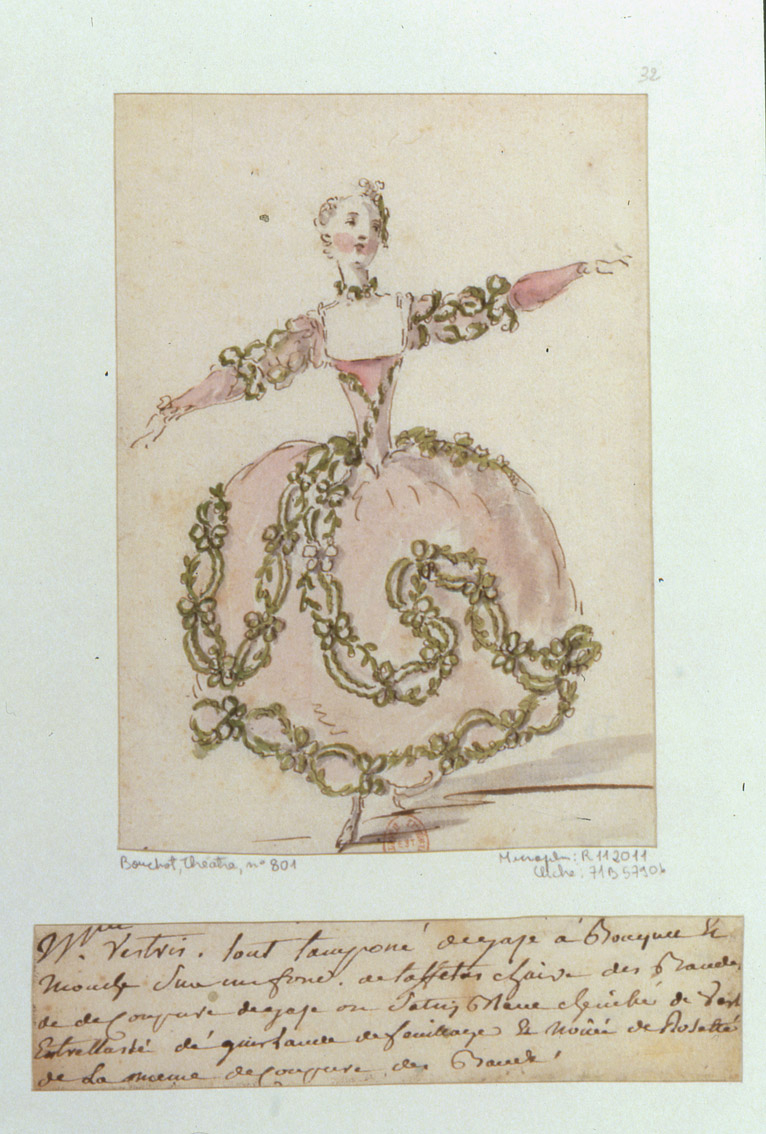 32
Bouchot, Théatre, n° 801
Microfilm: R 112011
Cliché: 71B57906
Vestris. tout tamponé de gaze à Bouquet
mouche Sur un fond. de taffetas chaire des Bande
de decoupure de gaze ou Satin Blanc de Vert
Entrellassé dé guirlande de feuillage & Nouée de Rosette
de La meme decoupure des Bande